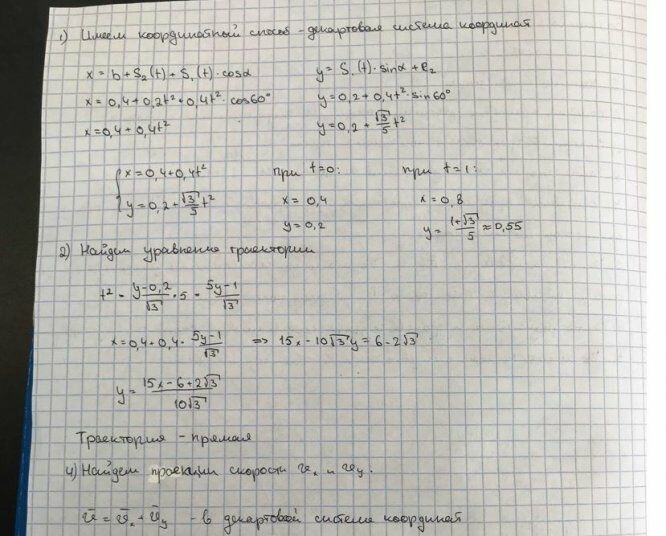 1) Имеем координатный способ - декартовая система координат
x = b + S₂(t) + S₁(t)·cosα y = S₁(t)·sinα + R₂
x = 0,4 + 0,2t² + 0,4t²·cos60° y = 0,2 + 0,4t²·sin60°
x = 0,4 + 0,4t² y = 0,2 + √3/5 t²
{ x = 0,4 + 0,4t² при t=0: при t=1:
y = 0,2 + √3/5 t² x = 0,4 x = 0,8
y = 0,2 y = (1+√3)/5 ≈ 0,55
2) Найдем уравнение траектории
t² = (y-0,2)/√3 · 5 = (5y-1)/√3
x = 0,4 + 0,4 · (5y-1)/√3 => 15x - 10√3y = 6 - 2√3
y = (15x - 6 + 2√3)/(10√3)
Траектория - прямая
4) Найдем проекции скорости vₓ и vᵧ.
v̄ = v̄ₓ + v̄ᵧ - в декартовой системе координат